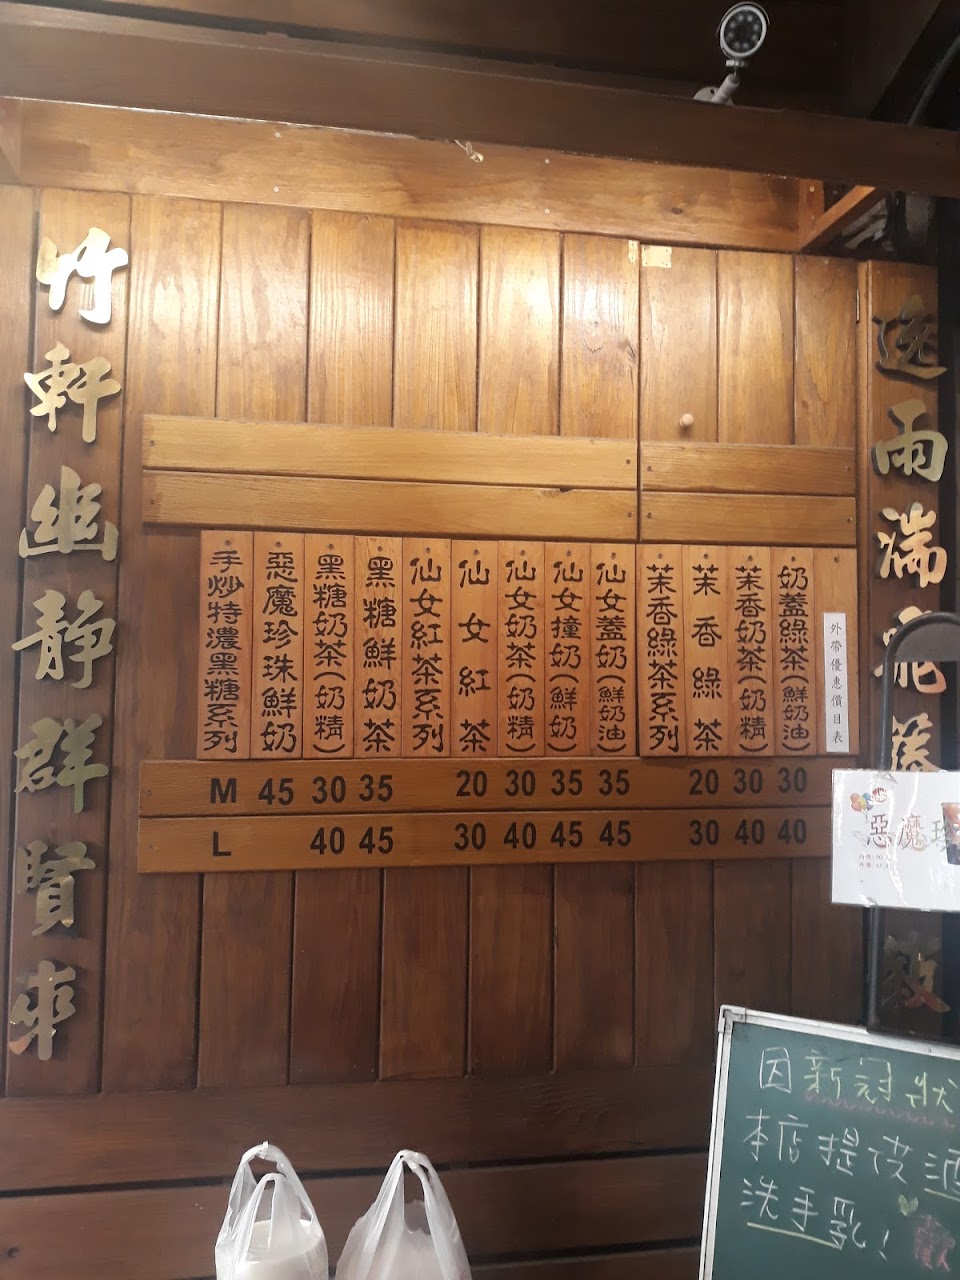 竹軒幽靜群賢來
逸雨湍飛
外帶優惠價目表
奶蓋綠茶(鮮奶油)
茉香奶茶(奶精)
茉香綠茶
茉香綠茶系列
仙女蓋奶(鮮奶油)
仙女撞奶(鮮奶)
仙女奶茶(奶精)
仙女紅茶
仙女紅茶系列
黑糖鮮奶茶
黑糖奶茶(奶精)
惡魔珍珠鮮奶
手炒特濃黑糖系列
M 45 30 35 20 30 35 35 20 30 30
L 40 45 30 40 45 45 30 40 40
惡魔珍
因新冠狀
本店提供酒
洗手乳!
歡